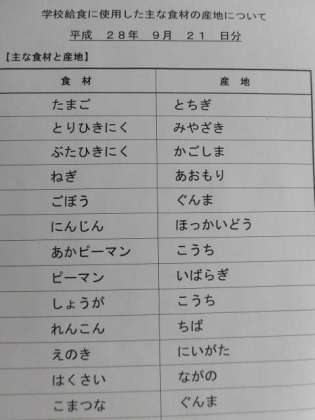 学校給食に使用した主な食材の産地について
平成 28年 9月 21 日分
【主な食材と産地】
食 材 産 地
たまご とちぎ
とりひきにく みやざき
ぶたひきにく かごしま
ねぎ あおもり
ごぼう ぐんま
にんじん ほっかいどう
あかピーマン こうち
ピーマン いばらぎ
しょうが こうち
れんこん ちば
えのき にいがた
はくさい ながの
こまつな ぐんま